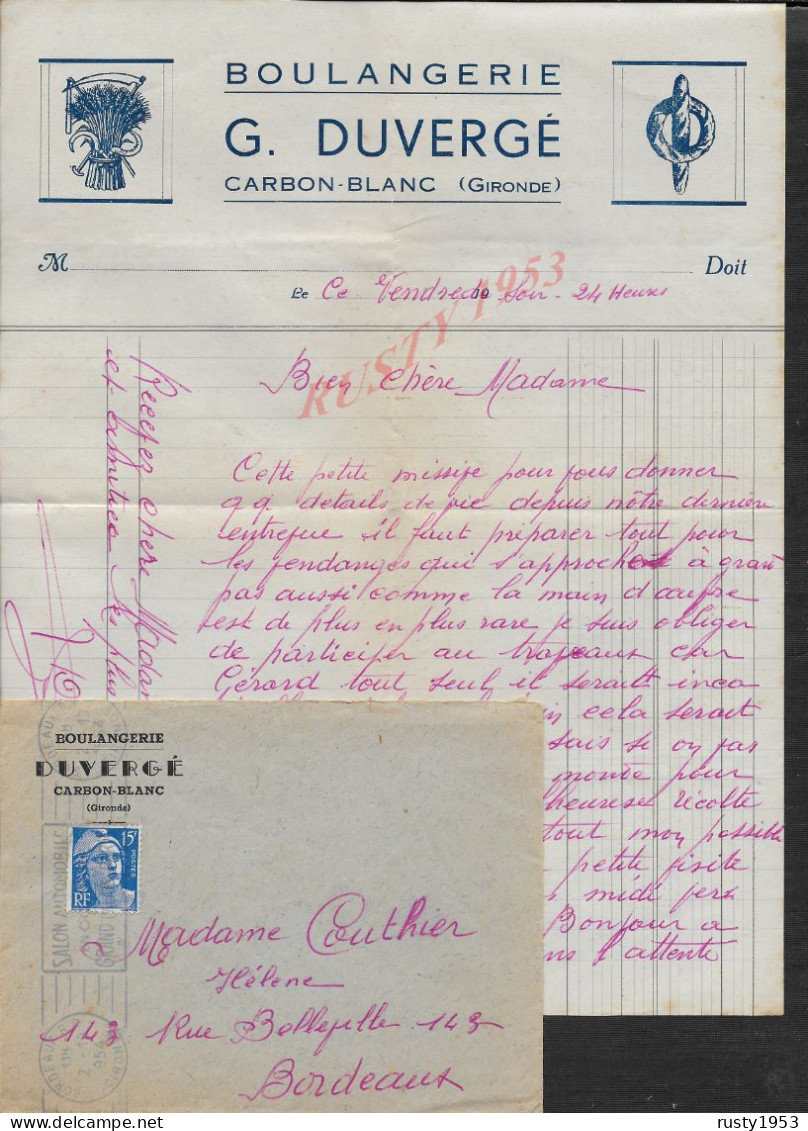 BOULANGERIE
G. DUVERGÉ
CARBON-BLANC (GIRONDE)
M Doit
Le Ce Vendredi 19 Soir - 24 Heures
RUSTY 1953
Bien chère Madame
Cette petite missife pour fous donner
q.q. details de vie depuis nôtre dernière
entrefue il faut préparer tout pour
les fendanges qui s'approchent à grand
pas aussi comme la main d'oeufre
est de plus en plus rare je suis obliger
de participer au trafeaux car
Gérard tout seul il serait inca
cela serait
sais si on far
monde pour
heureuse récolte
tout mon possible
petite fisite
midi fers
Bonjour a
l'attente
Recefez chère Madame
et amitiés les plus
BOULANGERIE
DUVERGÉ
CARBON-BLANC
(Gironde)
15F
POSTES
RF
SALON AUTOMOBILE
BORDEAUX
GIRONDE
Madame Couthier
Hélène
143 Rue Bellefille 143
Bordeaux
rusty1953
delcampe.net